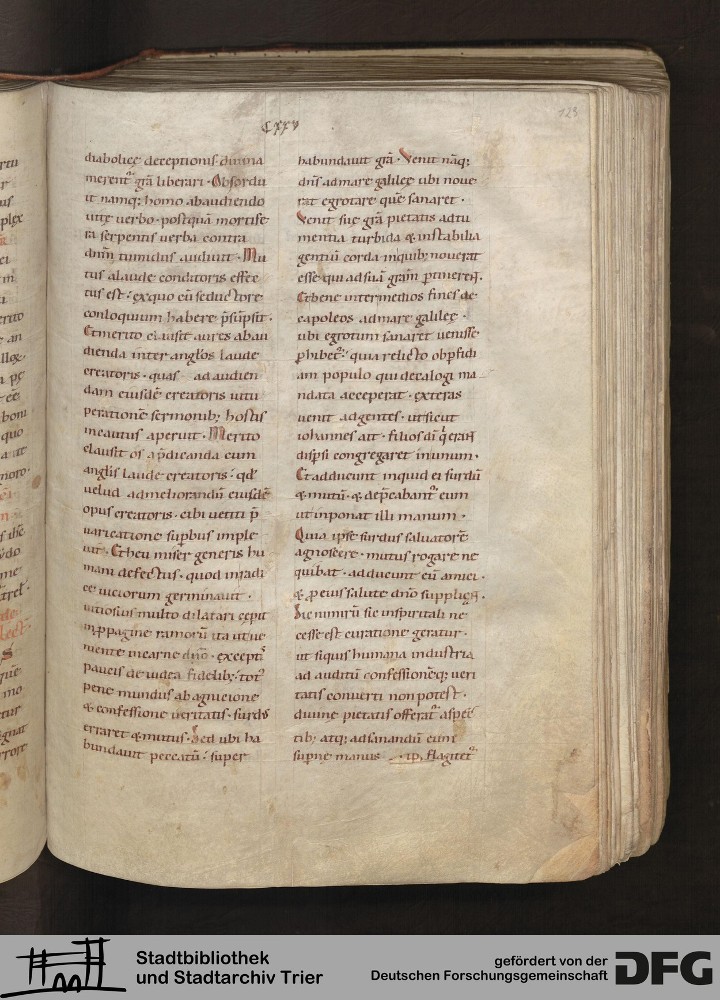 CXXV
123
diabolicę deceptionis diuina
merent᷑ gr̄a liberari · Obsordu
it namq; homo abaudiendo
uitę uerbo · postquā mortife
ra serpentis uerba contra
dn̄m tumidus audiuit · Mu
tus alaude conditoris effec
tus est · exquo cū seductore
conloquium habere p̄sūpsit ·
Et merito clausit aures abau
dienda inter angłos laude
creatoris · quas ad audien
dam eiusdē creatoris uitu
peratione sermonib; hostis
incautus aperuit · Merito
clausit os ap̄dicanda cum
angłis laude creatoris : qd᷑
uelud admeliorandū eiusdē
opus creatoris · cibi uetiti p̄
uaricatione supbus imple
uit · Et heu miser generis hu
mani defectus · quod inradi
ce uiciorum germinauit ·
uitiosius multo dilatari cępit
inppagine ramorū ita utue
niente incarne dn̄o · exceptis
paucis de iudea fidelib; · tot᷑
pene mundus ab agnicione
& confessione ueritatis · surdus
erraret & mutus · Sed ubi ha
bundauit peccatū : super
habundauit gr̄a · Venit nāq;
dn̄s admare galileę ubi noue
rat egrotare que sanaret ·
Venit suę gr̄a pietatis adtu
mentia turbida & instabilia
gentiū corda inquib; nouerat
esse qui adsuā grām ptinerent ·
Et bene intermedios fines de
capoleos admare galileę ·
ubi egrotum sanaret uenisse
phibet᷑ : quia relicto obpfidi
am populo qui decalogi ma
ndata acceperat · exteras
uenit adgentes · ut sicut
iohannes ait · filios di q̇ erant
dispsi congregaret inunum ·
Et adducunt inquid ei surdū
& mutū · & dep̄cabant᷑ eum
ut inponat illi manum ·
Quia ipse surdus saluatorē
agnoscere · mutus rogare ne
quibat · adducunt eū amici ·
& p eius salute dn̄o supplicant ·
Sic nimirū sic inspiritali ne
cesse est curatione geratur ·
ut siquis humana industria
ad auditū confessionēq; ueri
tatis conuerti non potest ·
diuinę pietatis offerat᷑ aspec
tib; atq; adsanandū eum
supnę manus flagitet᷑
Stadtbibliothek
und Stadtarchiv Trier
gefördert von der
Deutschen Forschungsgemeinschaft
DFG